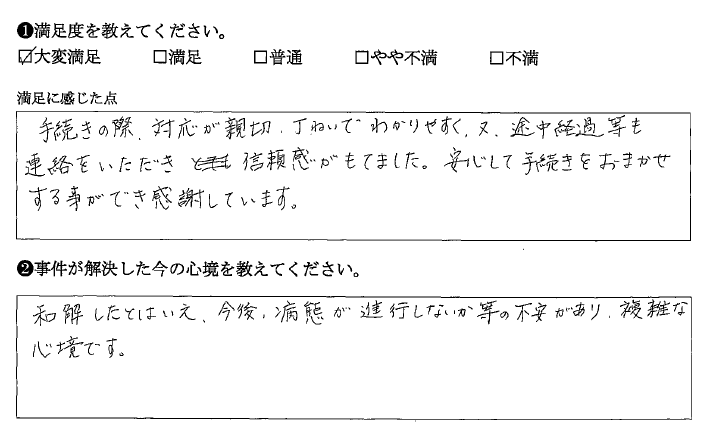 ❶満足度を教えてください。
☑大変満足 □満足 □普通 □やや不満 □不満
満足に感じた点
手続きの際、対応が親切、丁ねいでわかりやすく、又、途中経過等も
連絡をいただき 信頼感がもてました。安心して手続きをおまかせ
する事ができ感謝しています。
❷事件が解決した今の心境を教えてください。
和解したとはいえ、今後、病態が進行しないか等の不安があり、複雑な
心境です。